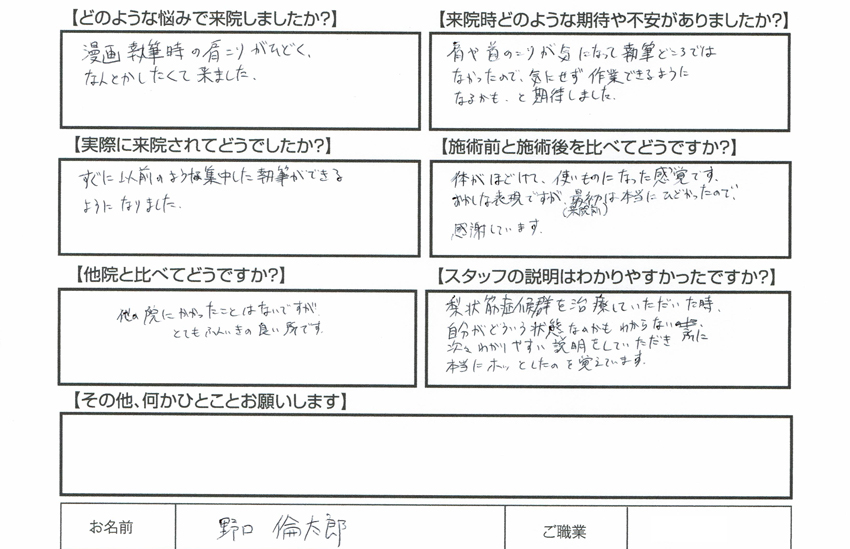 【どのような悩みで来院しましたか?】
漫画執筆時の肩こりがひどく、
なんとかしたくて来ました。
【来院時どのような期待や不安がありましたか?】
肩や首のこりが気になって執筆どころでは
なかったので、気にせず作業できるように
なるかも、と期待しました。
【実際に来院されてどうでしたか?】
すぐに以前のような集中した執筆ができる
ようになりました。
【施術前と施術後を比べてどうですか?】
体がほどけて、使いものになった感覚です。
おかしな表現ですが、最初は本当にひどかったので、
(来院前)
感謝しています。
【他院と比べてどうですか?】
他の院にかかったことはないですが
とてもふんいきの良い所です。
【スタッフの説明はわかりやすかったですか?】
梨状筋症候群を治療していただいた時、
自分がどういう状態なのかもわからない
所に
次々わかりやすい説明をしていただき
本当にホッとしたのを覚えています。
【その他、何かひとことお願いします】
お名前
野口 倫太郎
ご職業